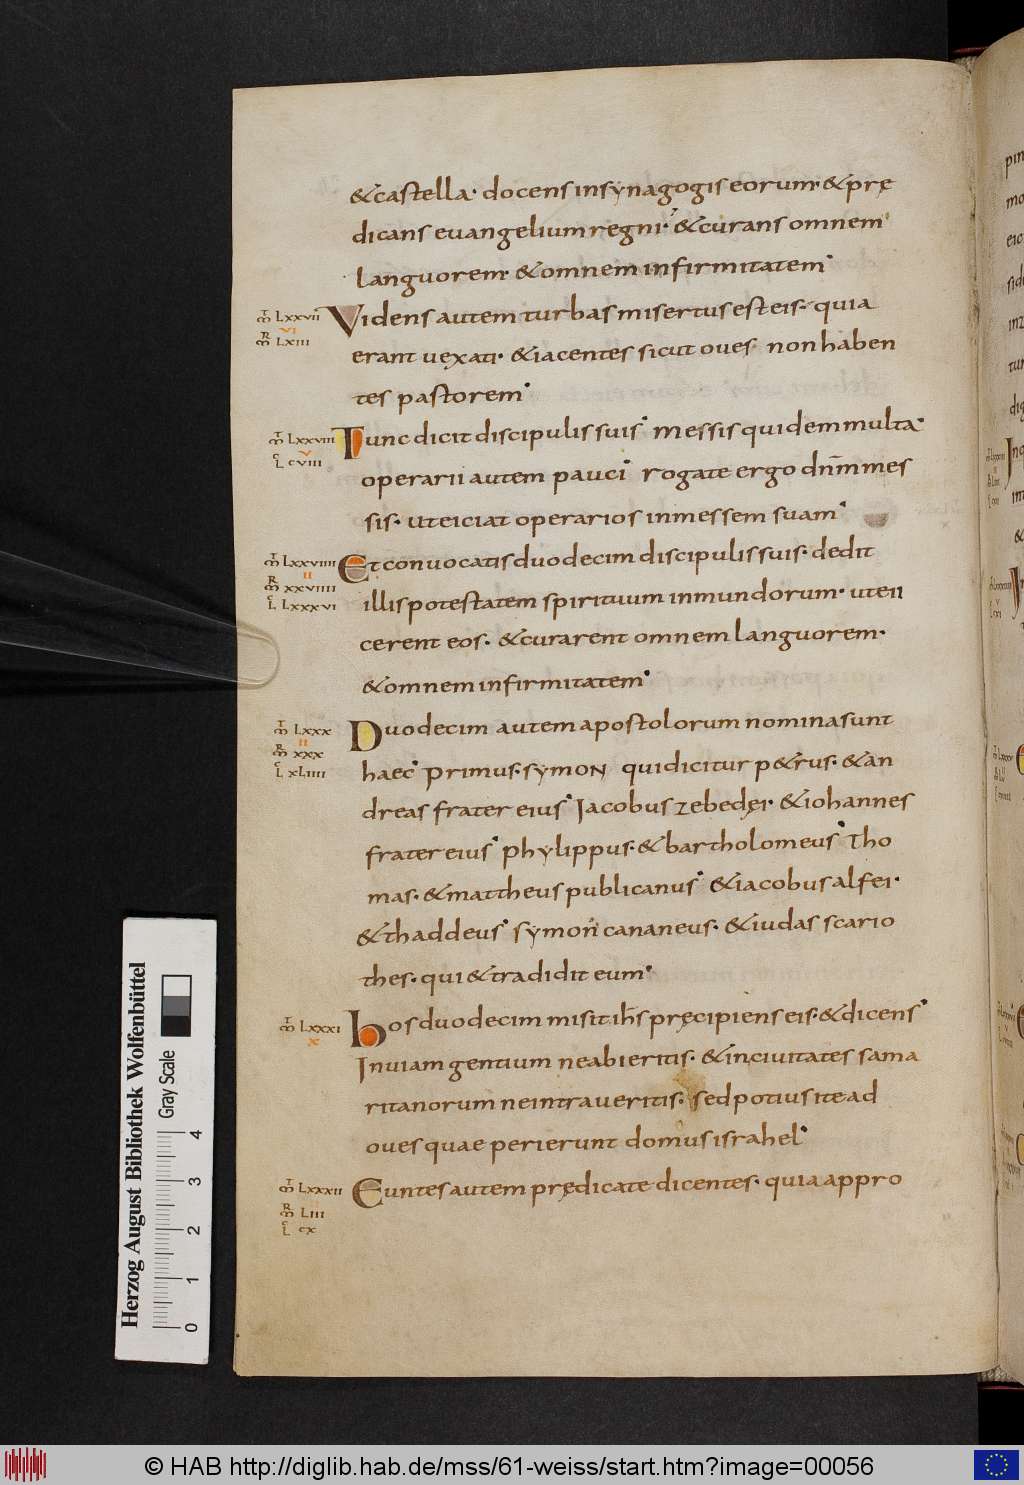 & castella· docens in synagogis eorum· & prę
dicans euangelium regni·' & curans omnem
languorem· & omnem infirmitatem·
MT LXXVII
VI
MR LXIII
Videns autem turbas misertus est eis· quia
erant uexati· & iacentes sicut oues non haben
tes pastorem·
MT LXXVIII
V
LC CVIII
Tunc dicit discipulis suis· messis quidem multa·
operarii autem pauci· rogate ergo dn̄m mes
sis· ut eiciat operarios in messem suam·
MT LXXVIIII
II
MR XXVIIII
LC LXXXVI
Et conuocatis duodecim discipulis suis· dedit
illis potestatem spirituum inmundorum· ut eii
cerent eos· & curarent omnem languorem·
& omnem infirmitatem·
MT LXXX
II
MR XXX
LC XLIIII
Duodecim autem apostolorum nomina sunt
haec· primus· symon qui dicitur p&rus· & an
dreas frater eius· Iacobus zebedęi· & iohannes
frater eius· phylippus· & bartholomeus· Tho
mas· & mattheus publicanus· & iacobus alfei·
& thaddeus· symon cananeus· & iudas scario
thes· qui & tradidit eum·
MT LXXXI
X
hos duodecim misit ih̄s pręcipiens eis· & dicens·
In uiam gentium ne abieritis· & in ciuitates sama
ritanorum ne intraueritis· sed potius ite ad
oues quae perierunt domus israhel·
MT LXXXII
MR LIII
LC CX
Euntes autem prędicate dicentes· quia appro
Herzog August Bibliothek Wolfenbüttel
Gray Scale
0 1 2 3 4
© HAB http://diglib.hab.de/mss/61-weiss/start.htm?image=00056